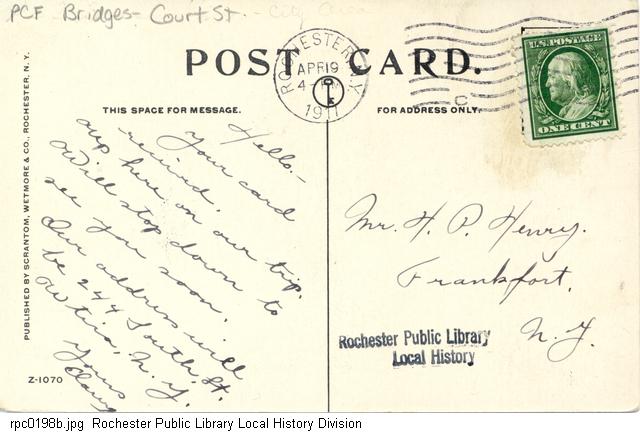 PCF Bridges- Court St.
POST CARD.
ROCHESTER, N.Y.
APR 19
4-
1911
U.S. POSTAGE
ONE CENT
THIS SPACE FOR MESSAGE.
FOR ADDRESS ONLY.
PUBLISHED BY SCRANTOM, WETMORE & CO., ROCHESTER, N.Y.
Hello.-
Your card
recived.
up here on our trip.
Will stop down to
see you soon.
Our address will
be 244 South St.
Utica, N.Y.
Yours
Z-1070
Mr. H. P. Henry.
Frankfort,
N.Y.
Rochester Public Library
Local History
rpc0198b.jpg Rochester Public Library Local History Division